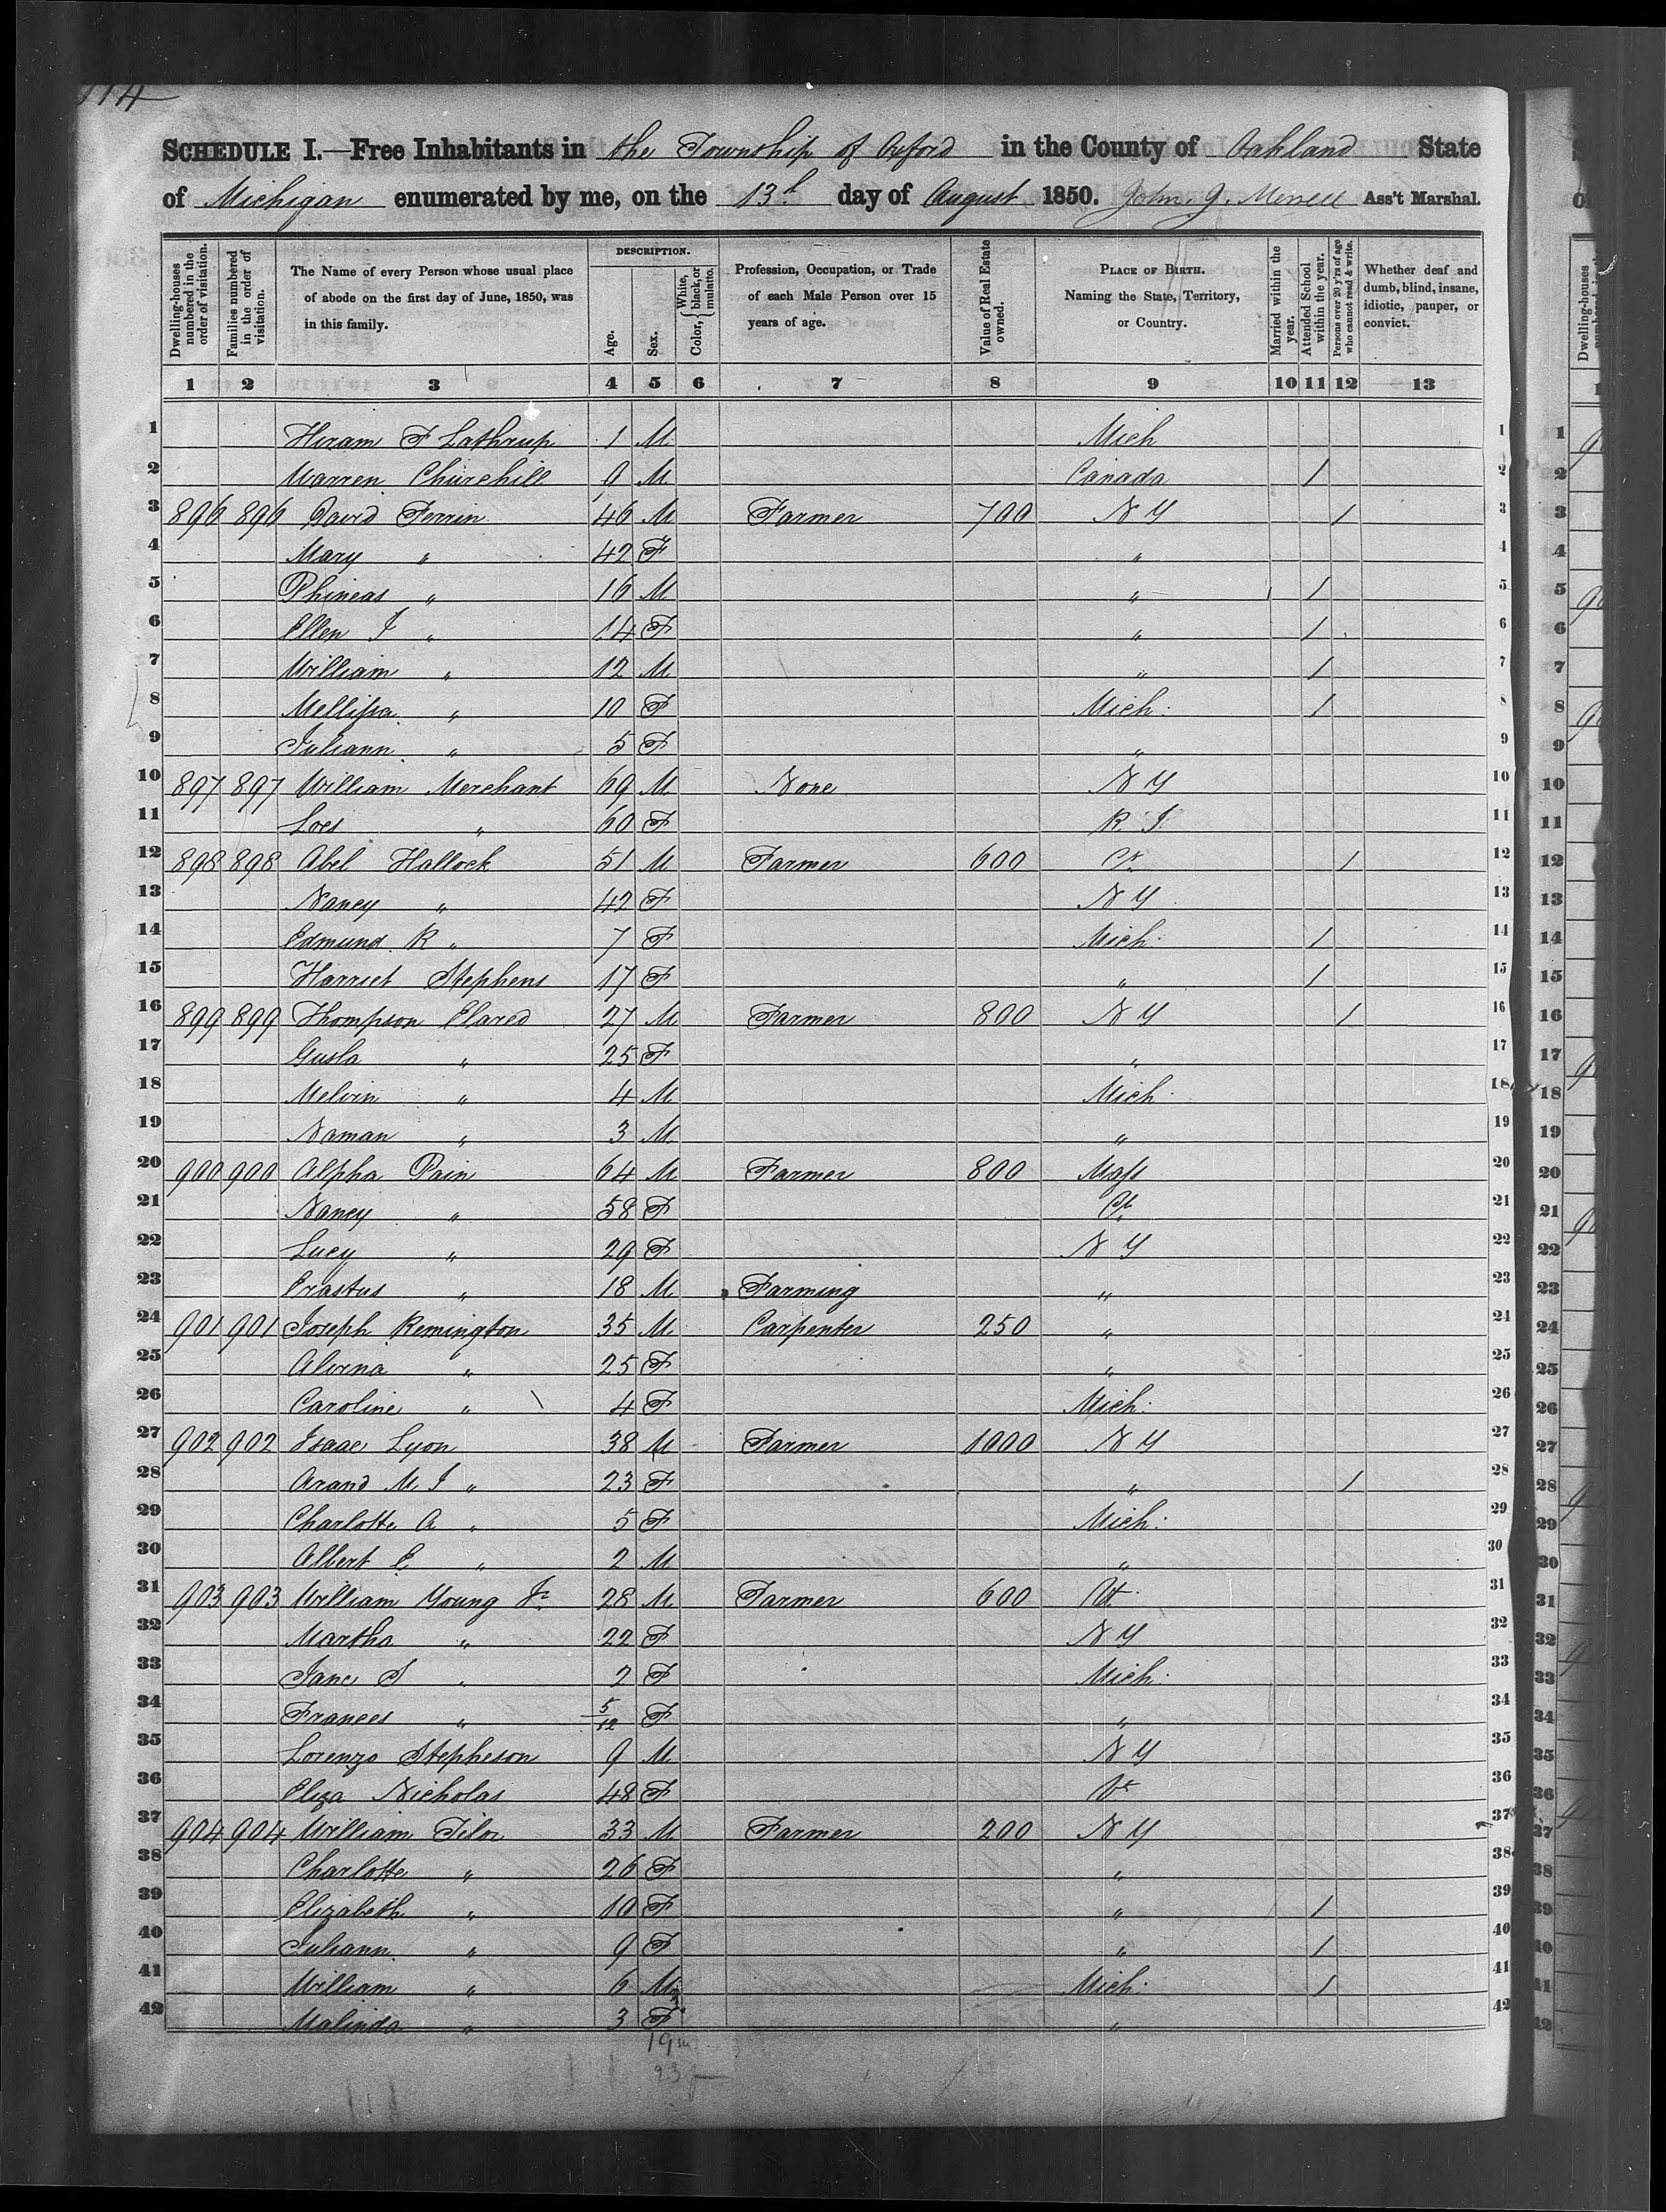 SCHEDULE I.—Free Inhabitants in the Township of Oxford in the County of Oakland State
of Michigan enumerated by me, on the 13th day of August 1850. John J. Merrell Ass't Marshal.
Dwelling-houses numbered in the order of visitation.
Families numbered in the order of visitation.
The Name of every Person whose usual place of abode on the first day of June, 1850, was in this family.
DESCRIPTION.
Age.
Sex.
Color, { White, black, or mulatto.
Profession, Occupation, or Trade of each Male Person over 15 years of age.
Value of Real Estate owned.
PLACE OF BIRTH. Naming the State, Territory, or Country.
Married within the year.
Attended School within the year.
Persons over 20 y'rs of age who cannot read & write.
Whether deaf and dumb, blind, insane, idiotic, pauper, or convict.
1 2 3 4 5 6 7 8 9 10 11 12 13
1 Hiram F Lathrup 1 M Mich 1
2 Warren Churchill 9 M Canada 1 2
3 896 896 David Ferrin 46 M Farmer 700 N Y 1 3
4 Mary " 42 F " 4
5 Phineas " 16 M " 1 5
6 Ellen J " 14 F " 1 6
7 William " 12 M " 1 7
8 Mellissa " 10 F Mich 1 8
9 Juliann " 5 F " 9
10 897 897 William Merchant 69 M None N Y 10
11 Lois " 60 F R I 11
12 898 898 Abel Hallock 51 M Farmer 600 Ct 1 12
13 Nancy " 42 F N Y 13
14 Edmund R " 7 F Mich 1 14
15 Harriet Stephens 17 F " 1 15
16 899 899 Thompson Elared 27 M Farmer 800 N Y 1 16
17 Gusla " 25 F " 17
18 Melvin " 4 M Mich 18
19 Naman " 3 M " 19
20 900 900 Alpha Pain 64 M Farmer 800 Mass 20
21 Nancy " 58 F Ct 21
22 Lucy " 29 F N Y 22
23 Erastus " 18 M Farming " 23
24 901 901 Joseph Remington 35 M Carpenter 250 " 24
25 Alvrna " 25 F " 25
26 Caroline " 4 F Mich 26
27 902 902 Isaac Lyon 38 M Farmer 1000 N Y 27
28 Arand M J " 23 F " 1 28
29 Charlotte A " 5 F Mich 29
30 Albert E " 2 M " 30
31 903 903 William Young Jr 28 M Farmer 600 Vt 31
32 Martha " 22 F N Y 32
33 Jane S " 2 F Mich 33
34 Frances " 5/12 F " 34
35 Lorenzo Stepheson 9 M N Y 35
36 Eliza Nicholas 48 F Vt 36
37 904 904 William Tilor 33 M Farmer 200 N Y 37
38 Charlotte " 26 F " 38
39 Elizabeth " 10 F " 1 39
40 Juliann " 9 F " 1 40
41 William " 6 M Mich 1 41
42 Malinda " 3 F " 42
19 m
23 f